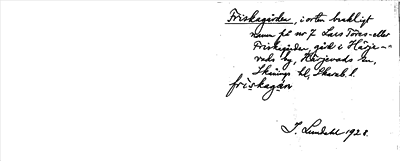 Friskagården, i orten brukligt
namn på nr 7 Lars Tores- eller
Friskagården, gård i Härje-
vads by, Härjevads sn,
Skånings hd, Skarab. l.
friskagán
J. Lundahl 1928.